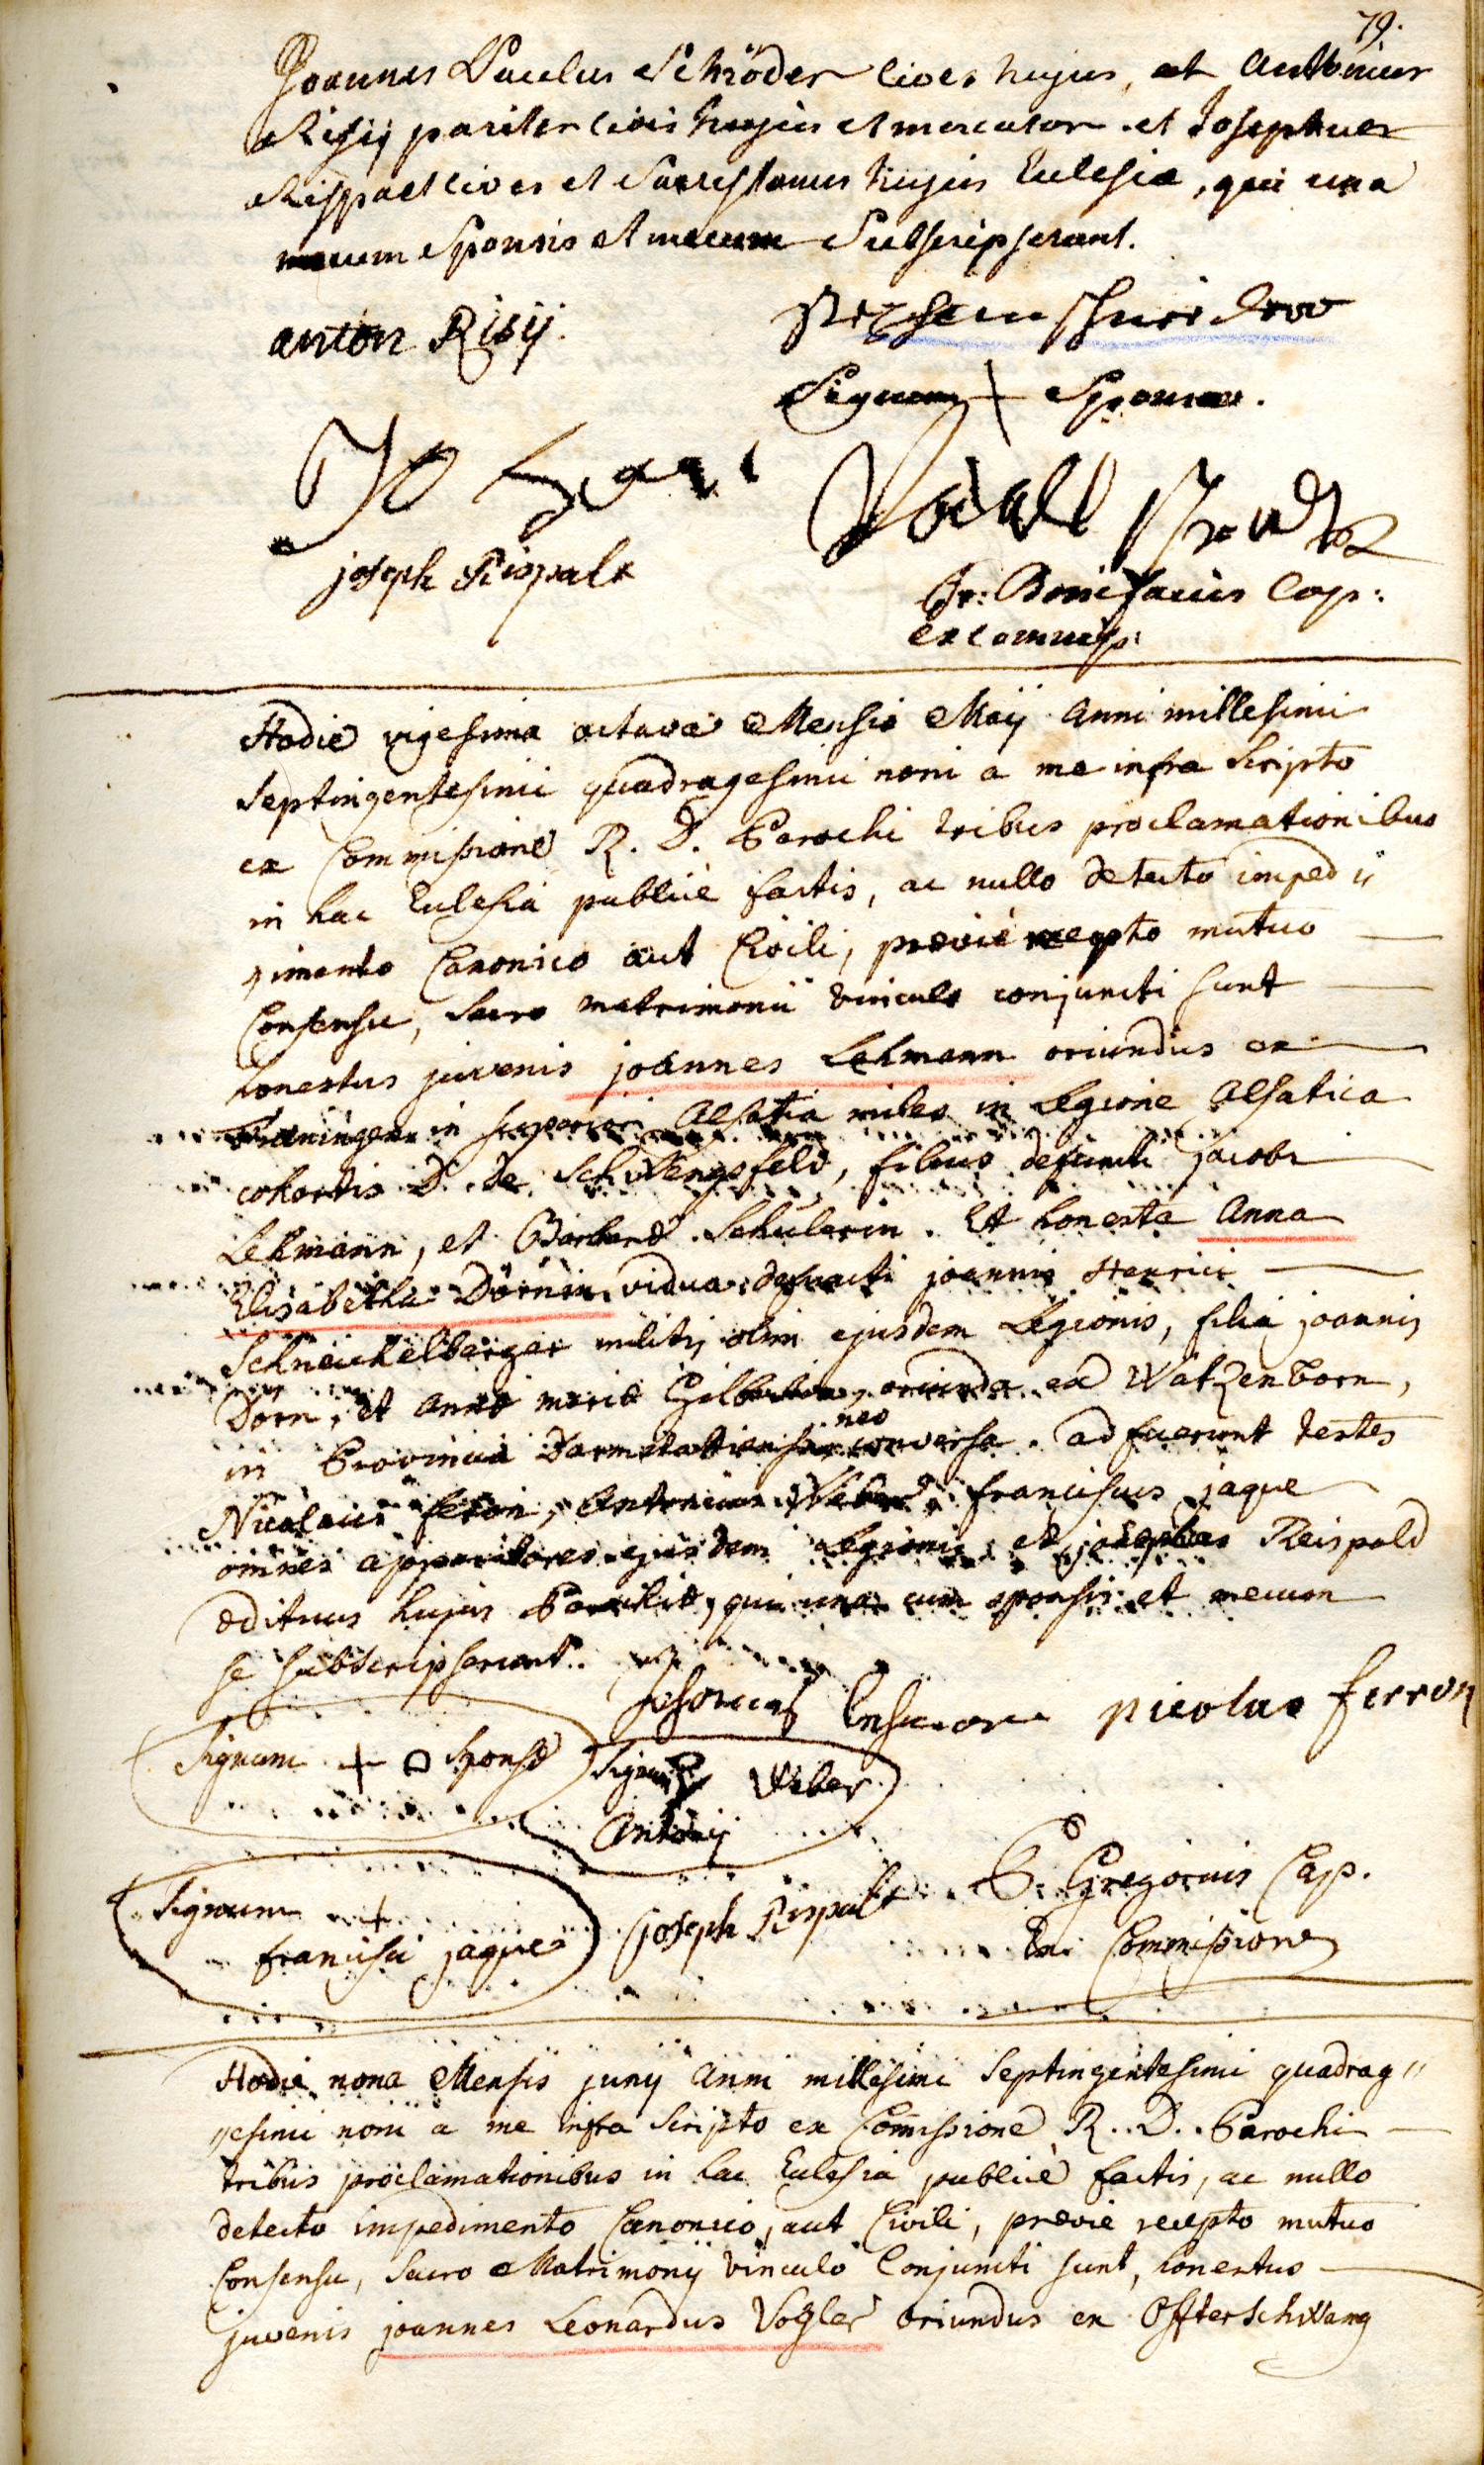 79.
Joannes Paulus Schröder cives hujus, et Antonius
Risij pariter civis hujus et mercator et Josephus
Rispalt cives et Sacristanus hujus Ecclesiæ, qui una
cum Sponsis et mecum Subscripserunt.
anton Risij.
Signum + Sponsæ.
joseph Rispalt
Fr: Bonifacius Cap:
ex commiss:
Hodie vigesima octava Mensis Maij Anni millesimi
Septingentesimi quadragesimi noni a me infra Scripto
ex Commissione R. D. Parochi tribus proclamationibus
in hac Ecclesia publicè factis, ac nullo detecto imped„
„imento Canonico aut Civili, prævie recepto mutuo
Consensu, Sacro matrimonii vinculo conjuncti sunt
honestus juvenis joannes Lehmann oriundus ex
in superiori Alsatia miles in Legione Alsatica
cohortis D. de Schwengsfeld, filius defuncti jacobi
Lehmann, et Barbaræ Schulerin. Et honesta Anna
Elisabetha Dörnin vidua defuncti joannis Henrici
Schneickelberger militis olim ejusdem Legionis, filia joannis
Dorn, et Annæ mariæ oriunda ex Watzenborn,
in Provincia Darmstattiensi neo conversa. adfuerunt testes
Nicolaus feron, Antonius Weber, franciscus jaque
omnes apparitores ejusdem Legionis et josephus Reispald
ædituus hujus Parochiæ, qui una cum sponsis et mecum
se subscripserunt.
nicolas ferron
Signum + O Sponsæ
Signum Weber
Antonij
Signum +
francisci jaque
joseph Rispalt
P. Gregorius Cap.
Ex Commissione
Hodie nona Mensis junij Anni millesimi Septingentesimi quadrag„
„esimi noni a me infra Scripto ex Comissione R. D. Parochi
tribus proclamationibus in hac Ecclesia publicè factis, ac nullo
detecto impedimento Canonico, aut Civili, prævie recepto mutuo
Consensu, Sacro Matrimonij vinculo Conjuncti sunt, honestus
juvenis joannes Leonardus Vogler oriundus ex Offterschwang